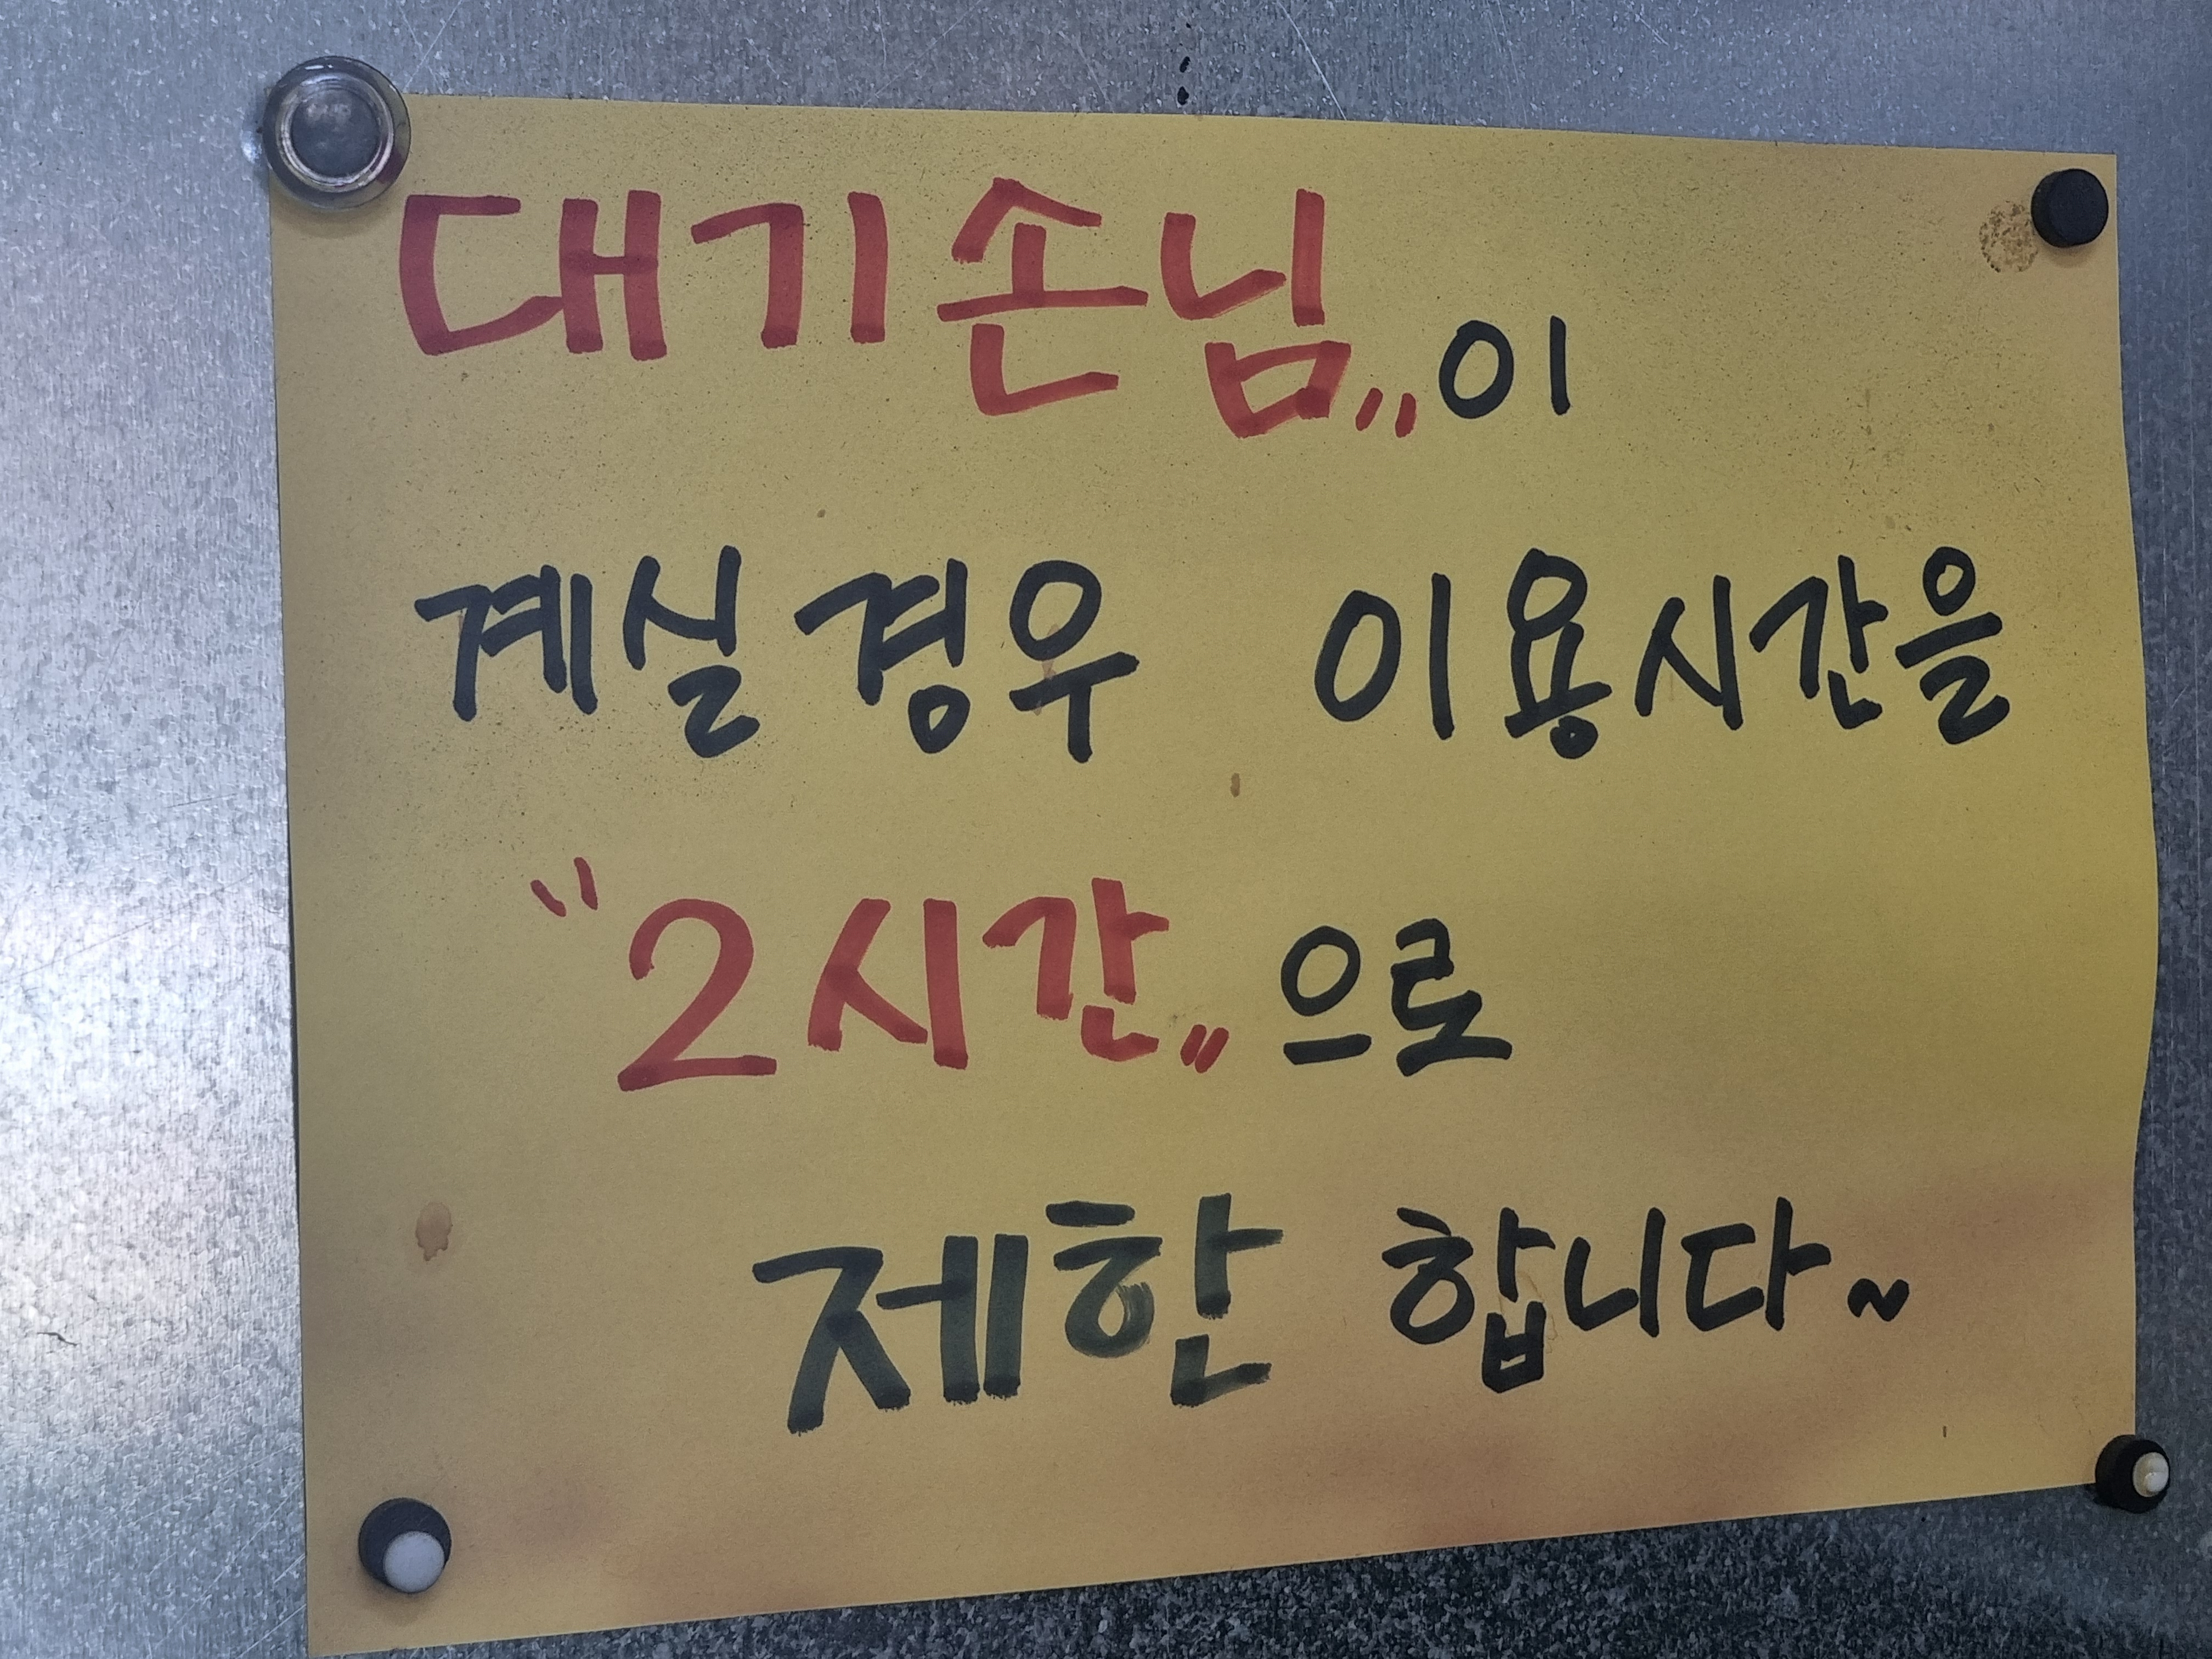 대기손님"이
계실경우 이용시간을
"2시간"으로
제한 합니다~